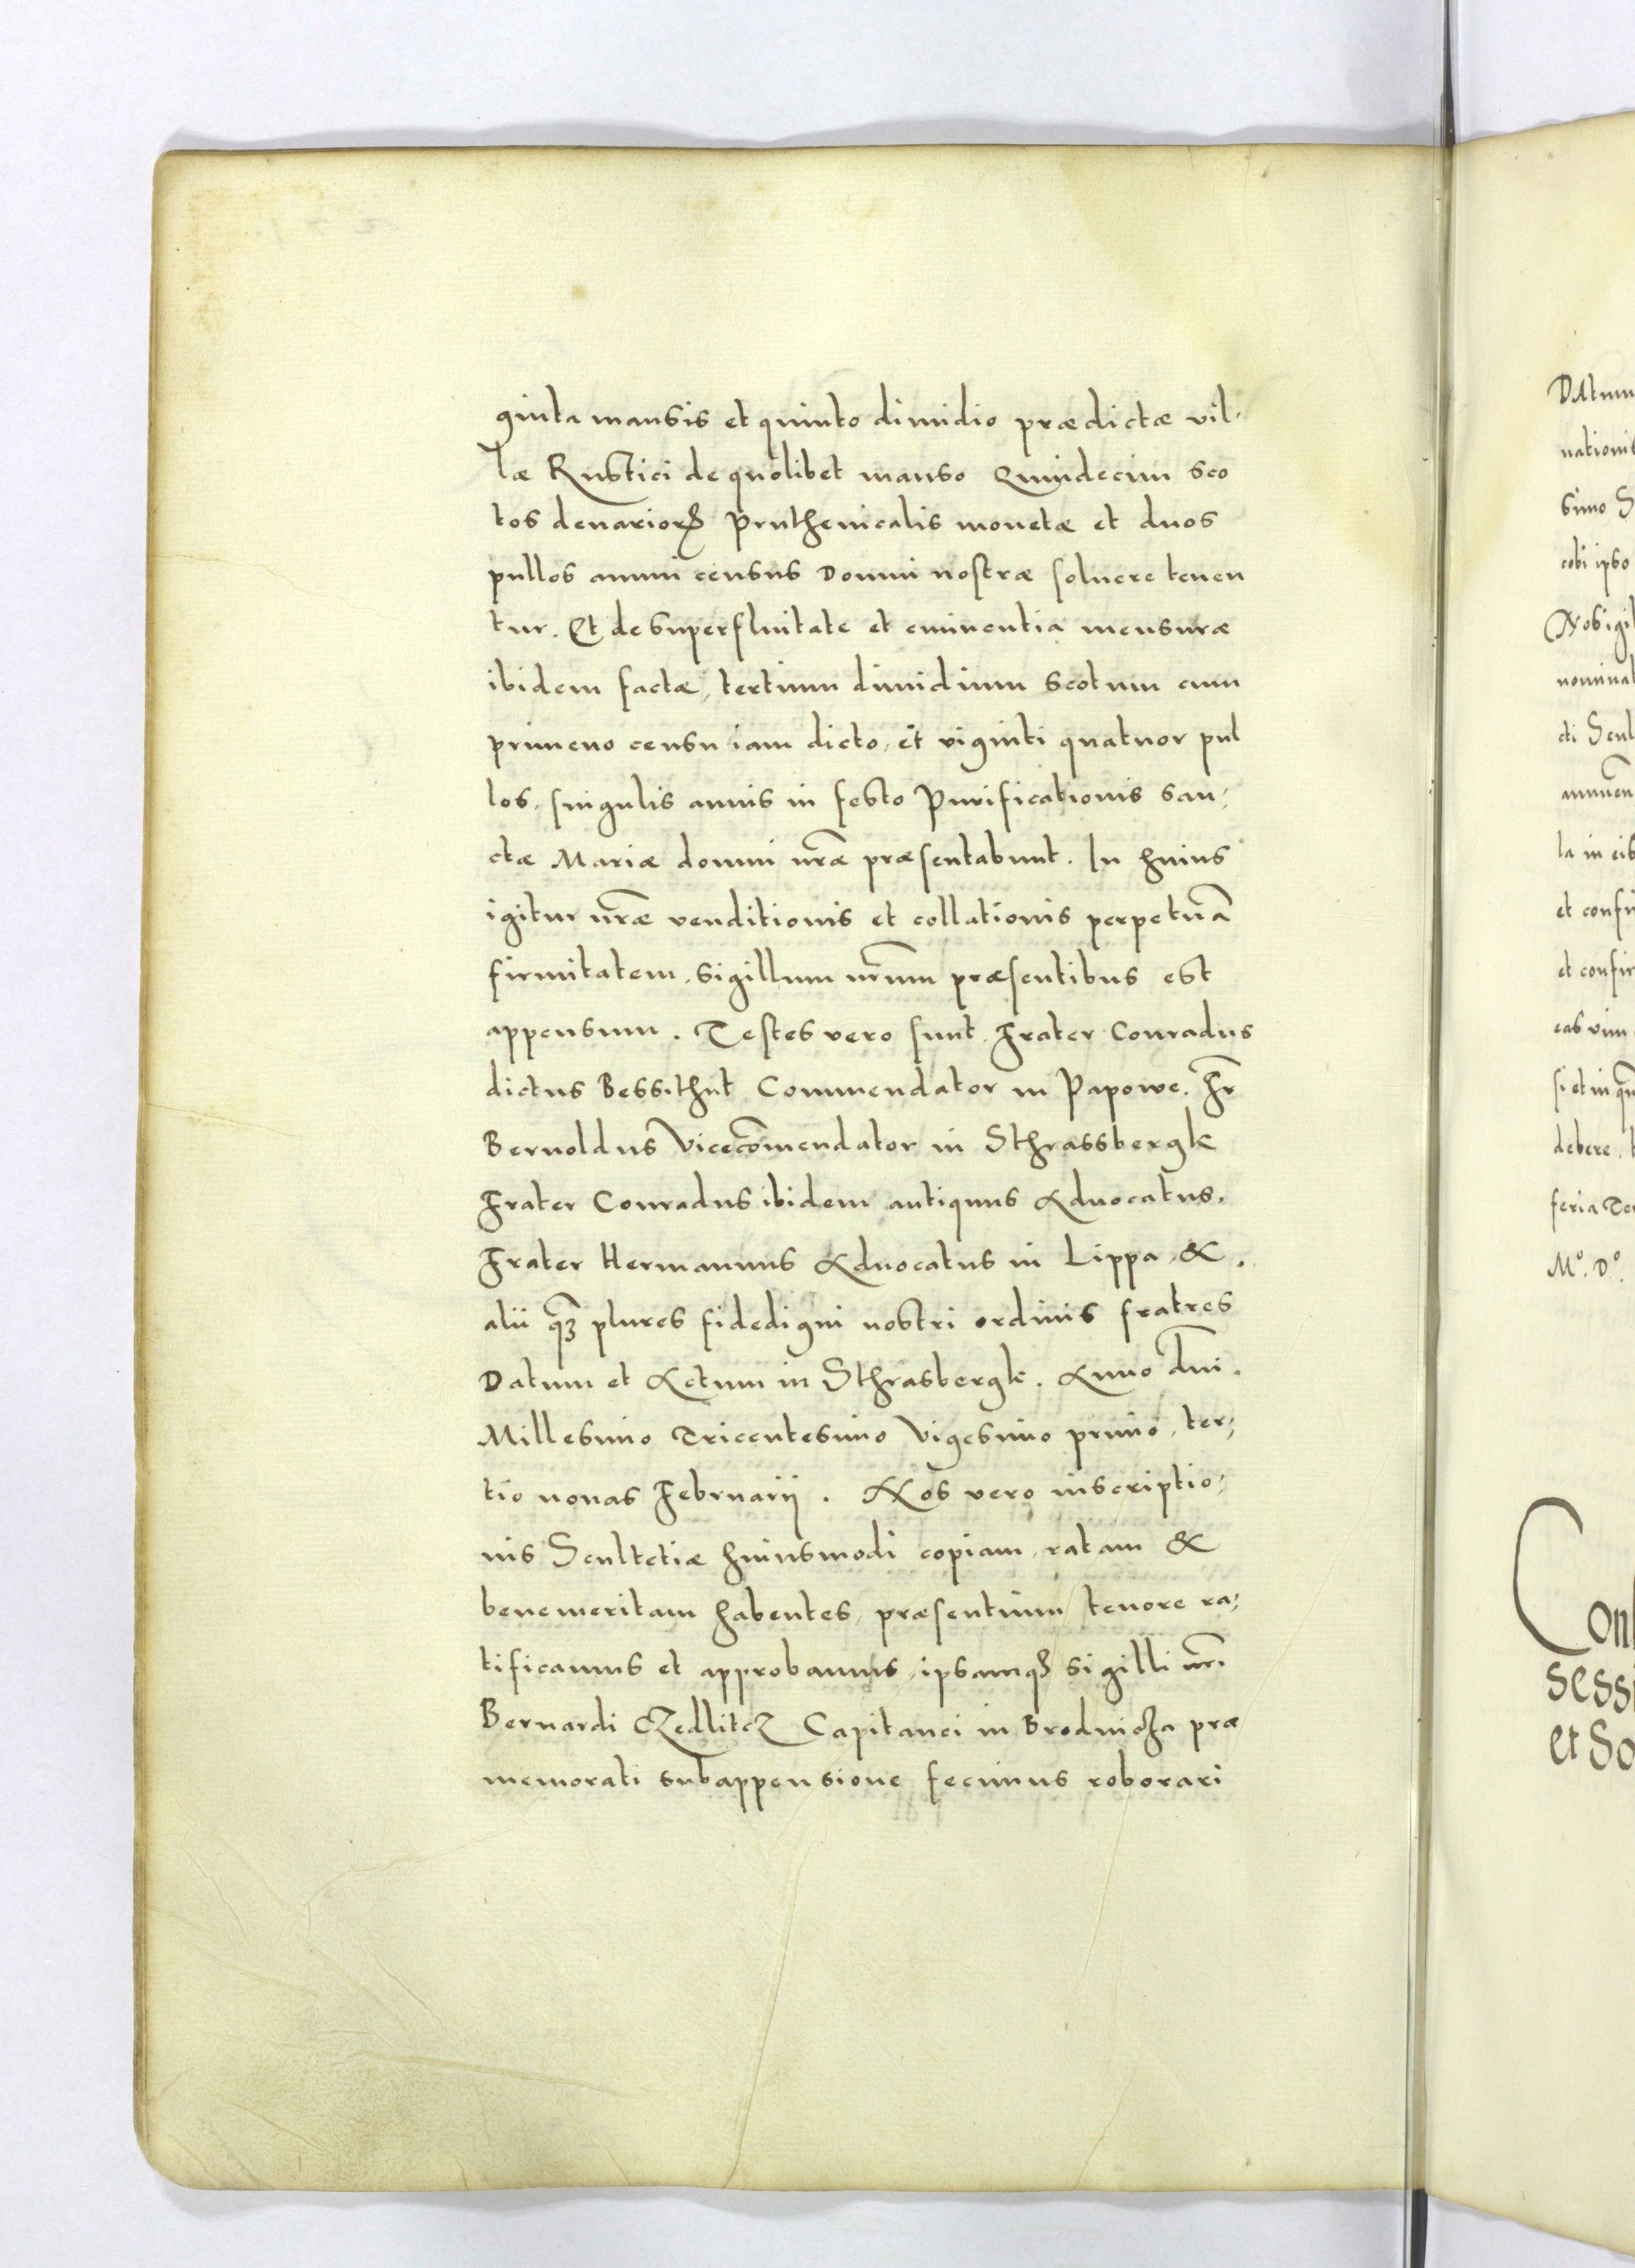 ginta mansis et quinto dimidio prædictæ vil-
læ Rustici de quolibet manso Quindecim sco
tos denarioꝝ Pruthenicalis monetæ et duos
pullos annui census Domui nostræ soluere tenen
tur. Et de superfluitate et eminentia mensuræ
ibidem factæ, tertium dimidium scotum cum
primeuo censu iam dicto, et viginti quatuor pul
los, singulis annis in festo Purificationis san-
ctæ Mariæ domui nr̃æ præsentabunt. In huius
igitur nr̃æ venditionis et collationis perpetuã
firmitatem, sigillum nr̃um præsentibus est
appensum. Testes vero sunt Frater Conradus
dictus Bessithut Commendator in Papowe. Fr̃
Bernoldus Vicecõmendator in Sthrassbergk
Frater Conradus ibidem antiquus Aduocatus.
Frater Hermannus Aduocatus in Lippa &.
alii qꝫ plures fidedigni nostri ordinis fratres
Datum et Actum in Sthrasbergk. Anno dñi.
Millesimo Tricentesimo Vigesimo primo, ter-
tio nonas Februarij. Nos vero inscriptio-
nis Scultetiæ huiusmodi copiam, ratam &
benemeritam habentes, præsentium tenore ra-
tificamus et approbamus, ipsamqꝫ sigilli nr̃i
Bernardi CZedlitcz Capitanei in Brodnicza præ
memorati subappensione fecimus roborari
DAtum
nationis
simo S
cobi ipso
Nos igit
nominat
cti Scul
la in eis
et confir
et confir
eas vim
si et in qu
debere, t
feria Ter
Mº. Dº.
Con
sessi
et So